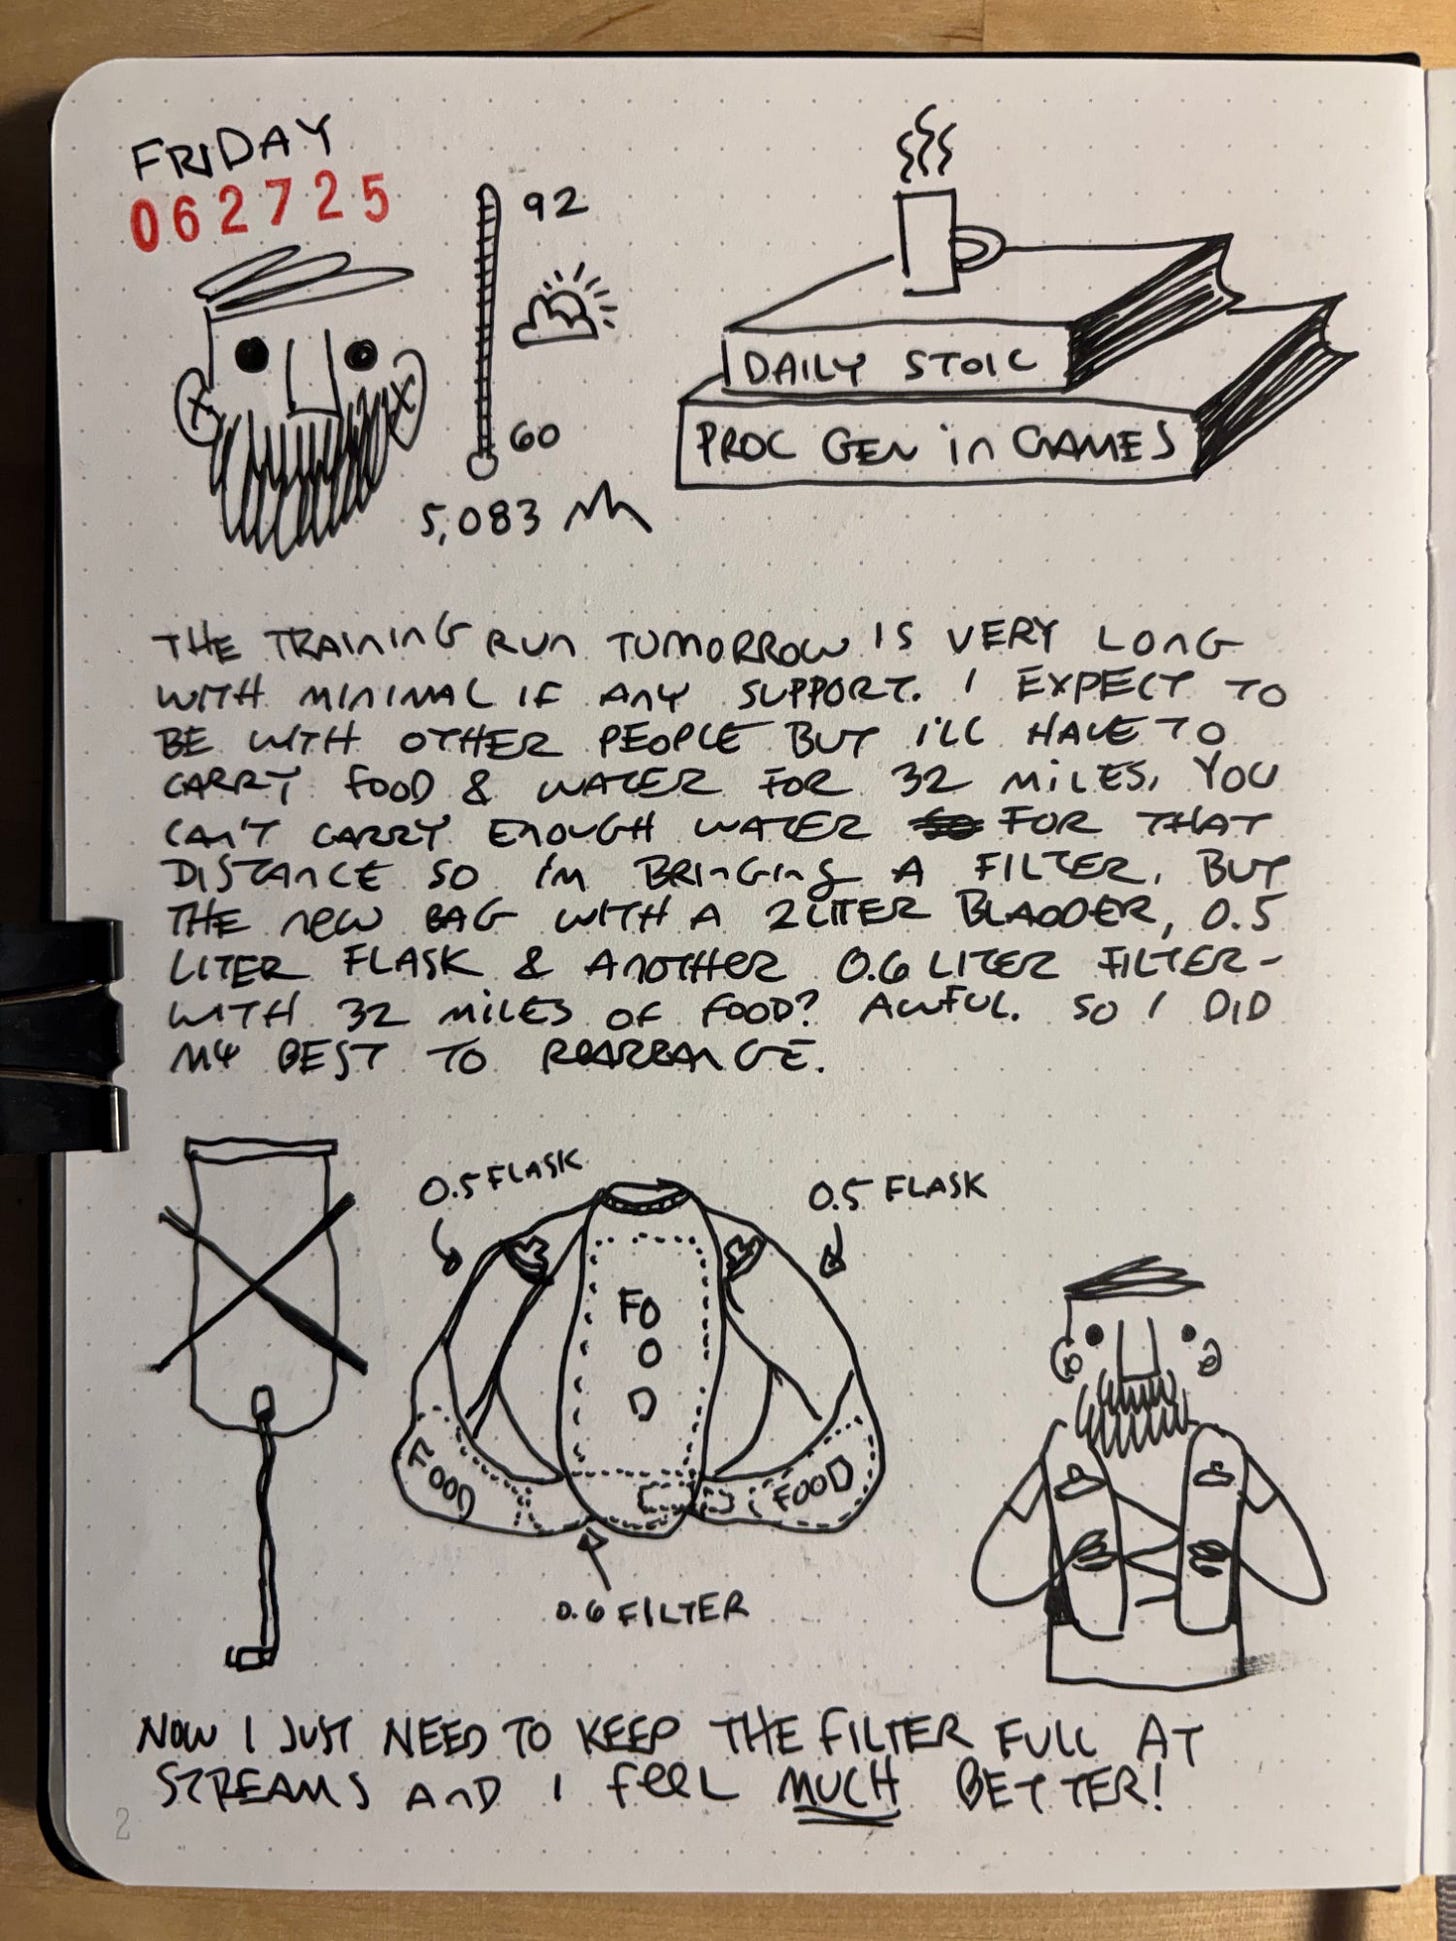 FRIDAY
062725
92
60
5,083
DAILY STOIC
PROC GEN in GAMES
THE TRAINING RUN TUMORROW IS VERY LONG
WITH MINIMAL IF ANY SUPPORT. I EXPECT TO
BE WITH OTHER PEOPLE BUT I'LL HAVE TO
CARRY FOOD & WATER FOR 32 MILES. YOU
CAN'T CARRY ENOUGH WATER FOR THAT
DISTANCE SO I'M BRINGING A FILTER. BUT
THE NEW BAG WITH A 2 LITER BLADDER, 0.5
LITER FLASK & ANOTHER 0.6 LITER FILTER-
WITH 32 MILES OF FOOD? AWFUL. SO I DID
MY BEST TO REARRANGE.
0.5 FLASK
0.5 FLASK
FO
O
D
FOOD
FOOD
0.6 FILTER
NOW I JUST NEED TO KEEP THE FILTER FULL AT
STREAMS AND I FEEL MUCH BETTER!
2